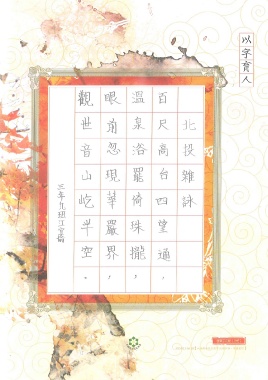 以字育人
北投雜詠
百尺高台四望通，
溫泉浴罷倚珠櫳，
眼前忽現華嚴界，
觀世音山屹半空。
三年九班